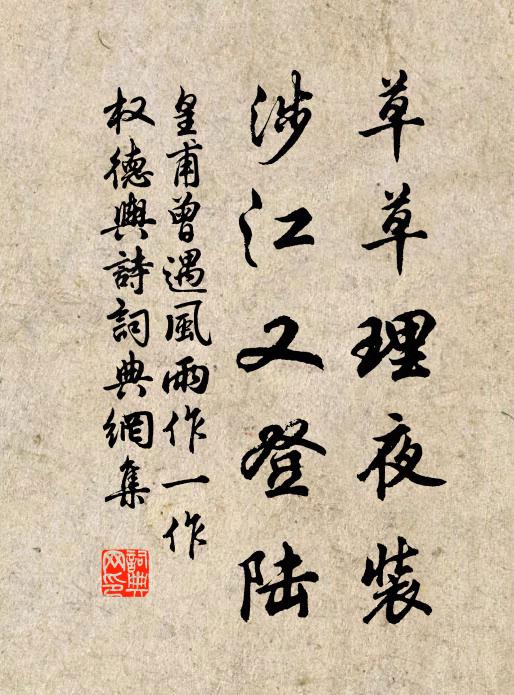 草草理夜裝
涉江又登陆
皇甫曾遇風雨作一作
权德輿詩詞典網集
詞典网印